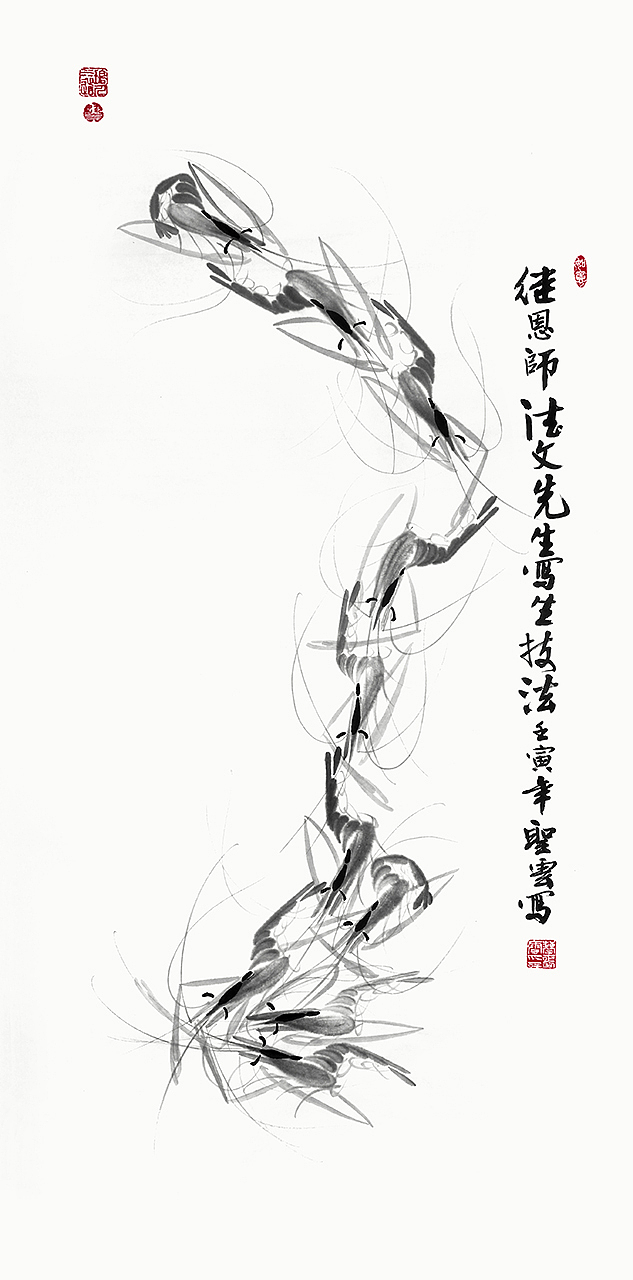 继恩師法文先生寫生技法壬寅年聖雲寫